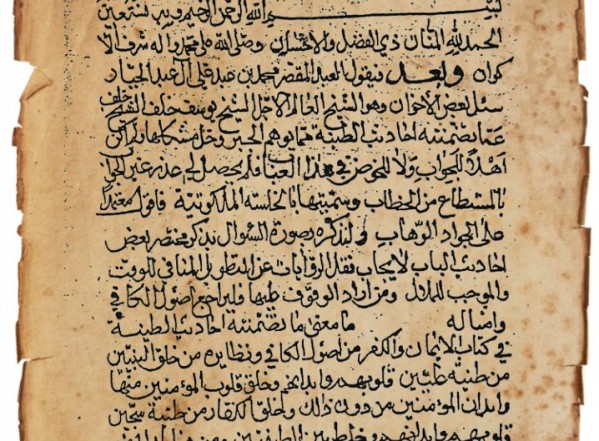 بسم الله الرحمن الرحيم وبه نستعين
الحمد لله المنان ذي الفضل والاحسان وصلى الله على محمد واله شرف الا
كوان وبعد فيقول العبد المقصر محمد بن عبد علي ال عبد الجبار
سئل بعض الاخوان وهو الشيخ العالم الاجل الشيخ يوسف خلف الشيخ خلف
عما تضمنته احاديث الطينة مما يوهم الجبر وحل مشكلها ولم اكن
اهلا للجواب ولا للخوض في هذا العباب فلم يحصل لي عذر غير الجواب
بالمستطاع من الخطاب وسميتها بالخلسة الملكوتية فاقول معتمدا
على الجواد الوهاب ولنذكره بصورة السؤال بذكر مختصر بعض
احاديث الباب لايجاب نقل الروايات عن التطويل المنافي للوقت
والموجب للملال ومن اراد الوقوف عليها فليراجع اصول الكافي
وامثاله ما معنى ما تضمنته احاديث الطينة
في كتاب الايمان والكفر من اصول الكافي ونظايره من خلق النبيين
من طينة عليين قلوبهم وابدانهم وخلق قلوب المؤمنين منها
وابدان المؤمنين من دون ذلك وخلق الكفار من طينة سجين
قلوبهم وابدانهم وخلط بين الطينتين